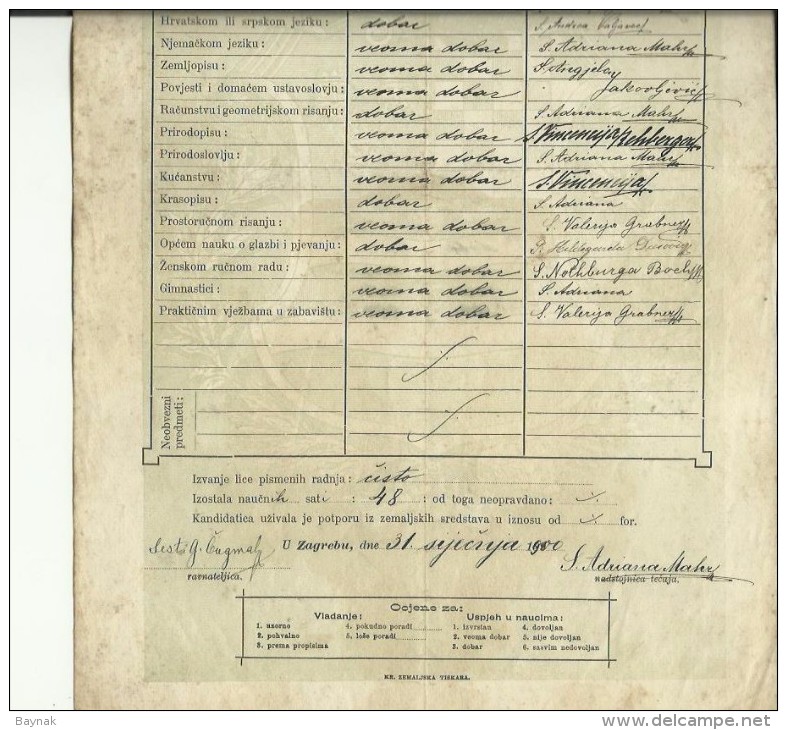 Hrvatskom ili srpskom jeziku: dobar S. Andrea
Njemačkom jeziku: veoma dobar S. Adriana Mahr
Zemljopisu: veoma dobar S. Angjela
Povjesti i domaćem ustavoslovju: veoma dobar Jakovljević
Računstvu i geometrijskom risanju: dobar S. Adriana Mahr
Prirodopisu: veoma dobar S. Vincencija Rehberger
Prirodoslovlju: veoma dobar S. Adriana Mahr
Kućanstvu: veoma dobar S. Vincencija
Krasopisu: dobar S. Adriana
Prostoručnom risanju: veoma dobar S. Valerija Grabner
Općem nauku o glazbi i pjevanju: dobar S. Hildegarda
Ženskom ručnom radu: veoma dobar S. Nothburga Boch
Gimnastici: veoma dobar S. Adriana
Praktičnim vježbama u zabavištu: veoma dobar S. Valerija Grabner
Neobvezni predmeti:
Izvanje lice pismenih radnja: čisto
Izostala naučnih sati: 48; od toga neopravdano:
Kandidatica uživala je potporu iz zemaljskih sredstava u iznosu od for.
U Zagrebu, dne 31. siječnja 1900
G. Čugmak S. Adriana Mahr
ravnateljica. nadstojnica tečaja.
Ocjene za:
Vladanje: Uspjeh u naucima:
1. uzorno 4. pokudno poradi 1. izvrstan 4. dovoljan
2. pohvalno 5. loše poradi 2. veoma dobar 5. nije dovoljan
3. prema propisima 3. dobar 6. sasvim nedovoljan
KR. ZEMALJSKA TISKARA.
Baynak
www.delcampe.net